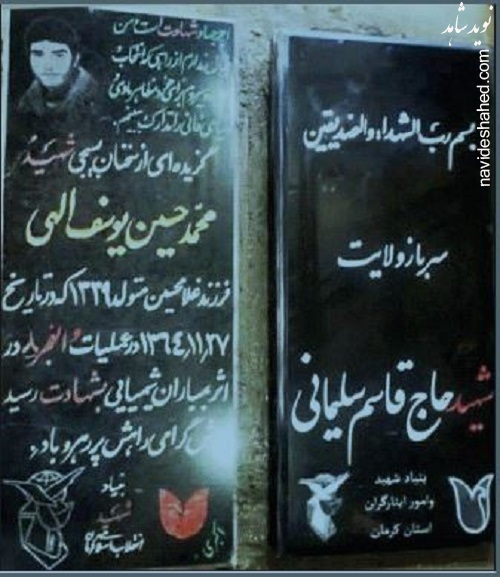 نوید شاهد
navideshahed.com
بسم رب الشهداء والصدیقین
سرباز ولایت
شهید حاج قاسم سلیمانی
بنیاد شهید
وامور ایثارگران
استان کرمان
اجر جهاد شهادت است و من
گزیده‌ای از سخنان بسیجی شهید
محمد حسین یوسف الهی
فرزند غلامحسین متولد ۱۳۳۹ که در تاریخ
۱۳۶۴،۱۱،۲۷ در عملیات والفجر ۸ در
اثر بمباران شیمیایی بشهادت رسید
گرامی راهش پر رهرو باد
بنیاد
شهید
انقلاب اسلامی کرمان